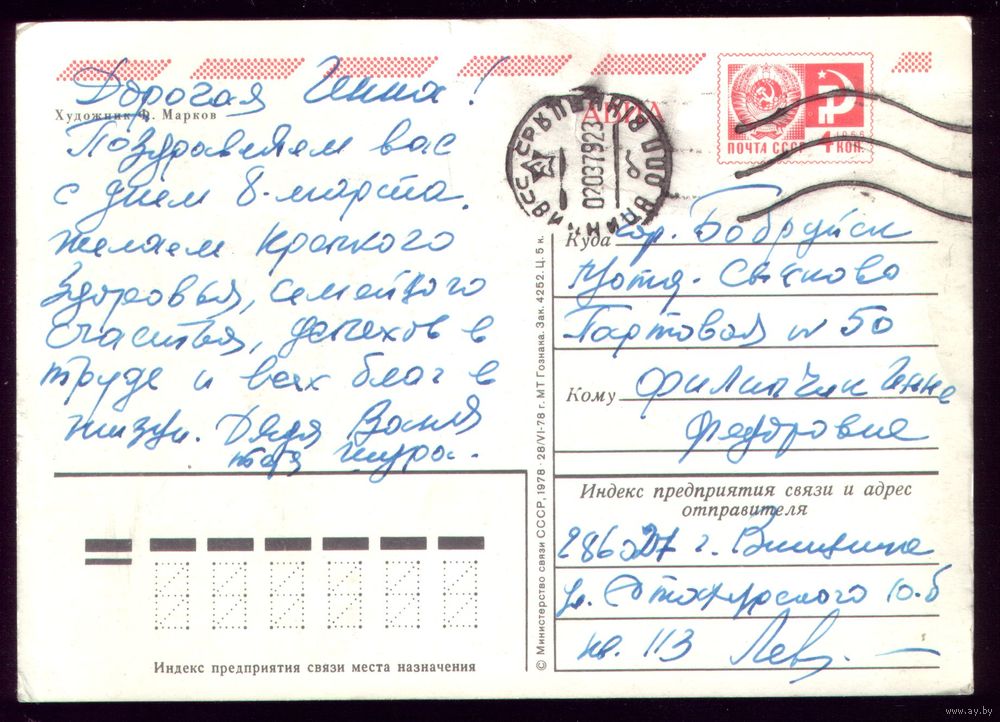 Дорогая Инна!
Художник Ф. Марков
Поздравляем вас
с днем 8-марта.
желаем крепкого
здоровья, семейного
счастья, успехов в
труде и всех благ в
жизни. Дядя Ваня
тетя Шура.
Индекс предприятия связи места назначения
© Министерство связи СССР, 1978 · 28/VI-78 г. МТ Гознака. Зак. 4252. Ц. 5 к.
АВИА
020379 23
ПОЧТА СССР
1966
4 КОП.
Куда гор. Бобруйск
Партовая № 50
Кому Филипчик Инне
Федоровне
Индекс предприятия связи и адрес
отправителя
286027 г. Винница
ул. 10-б
кв. 113 Лев.
www.ay.by